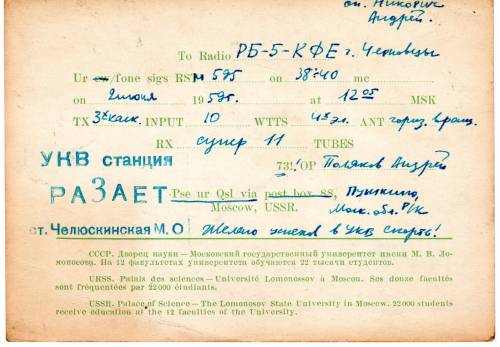 оп. Никорик
Андрей.
To Radio РБ-5-КФЕ г. Черновцы
Ur cw/fone sigs RST 595 on 38-40 mc
on 2 июня 1959г. at 12 05 MSK
TX 3х каск. INPUT 10 WTTS 4х эл. ANT гориз. вращ.
RX супер 11 TUBES
УКВ станция
73! OP Поляков Андрей
РАЗАЕТ Pse ur Qsl via post box 88, Пушкино,
Moscow, USSR. Моск. обл. Р/К
ст. Челюскинская М.О Желаю успехов в УКВ спорте!
СССР. Дворец науки — Московский государственный университет имени М. В. Ло-
моносова. На 12 факультетах университета обучаются 22 тысячи студентов.
URSS. Palais des sciences — Université Lomonossov à Moscou. Ses douze facultés
sont fréquentées par 22 000 étudiants.
USSR. Palace of Science — The Lomonosov State University in Moscow. 22 000 students
receive education at the 12 faculties of the University.